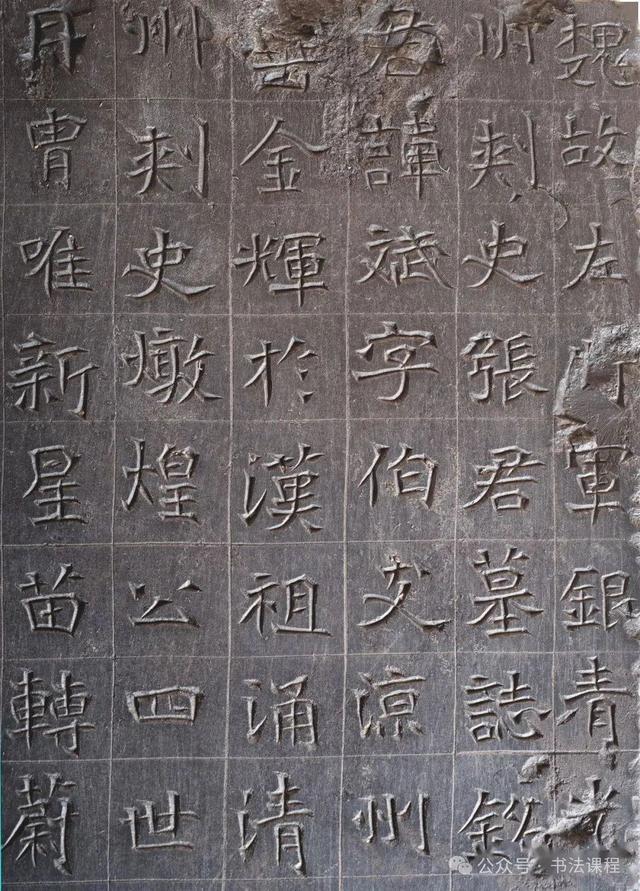 魏故左軍銀青光
州刾史張君墓誌銘
君諱斌字伯友涼州
金輝於漢祖涌清
州刾史燉煌公四世
胄唯新星苗轉蔚
公众号 · 书法课程